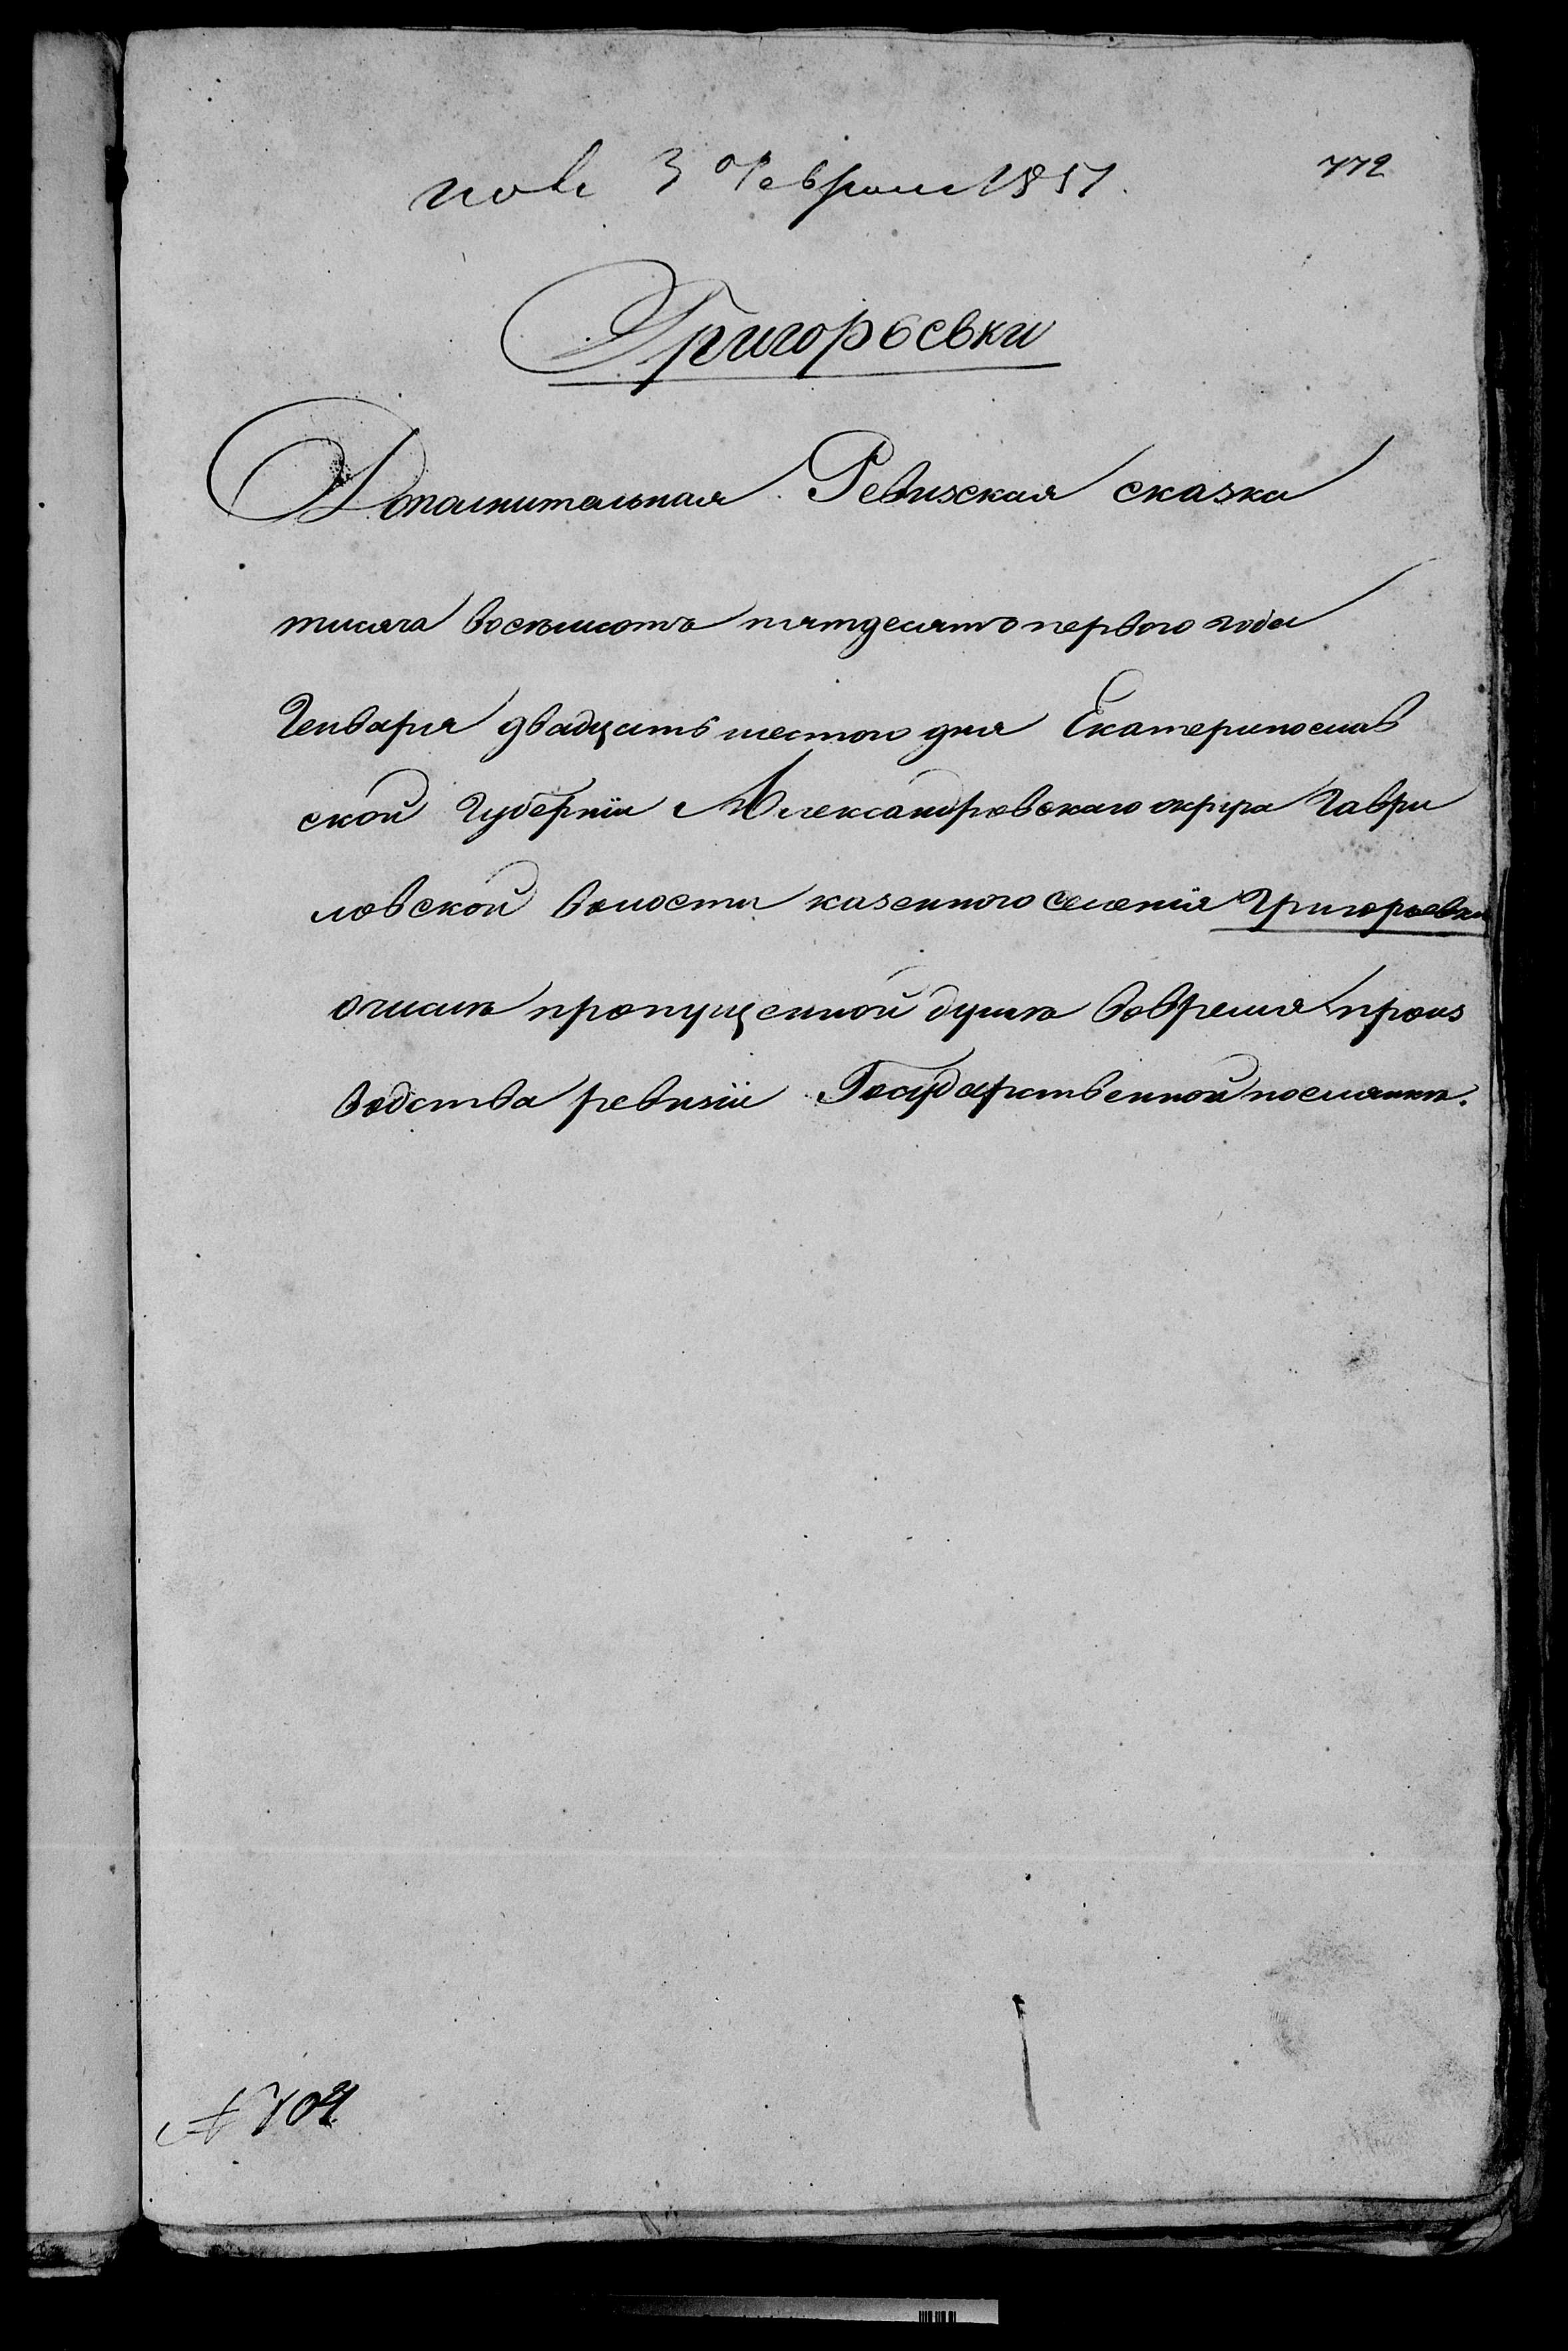 3 Февраля 1851.
772
Григорьевки
Дополнительная Ревизская сказка
тисяча восемсотъ пятдесятъ первого года
Генваря двадцать шестого дня Екатеринослав
ской Губерніи Александровскаго округа Гаври
ловской волости казенного селенія Григорьевки
о числѣ пропущенной душѣ вовремя произ
водства ревизіи Государственной поселянкѣ.
№ 704